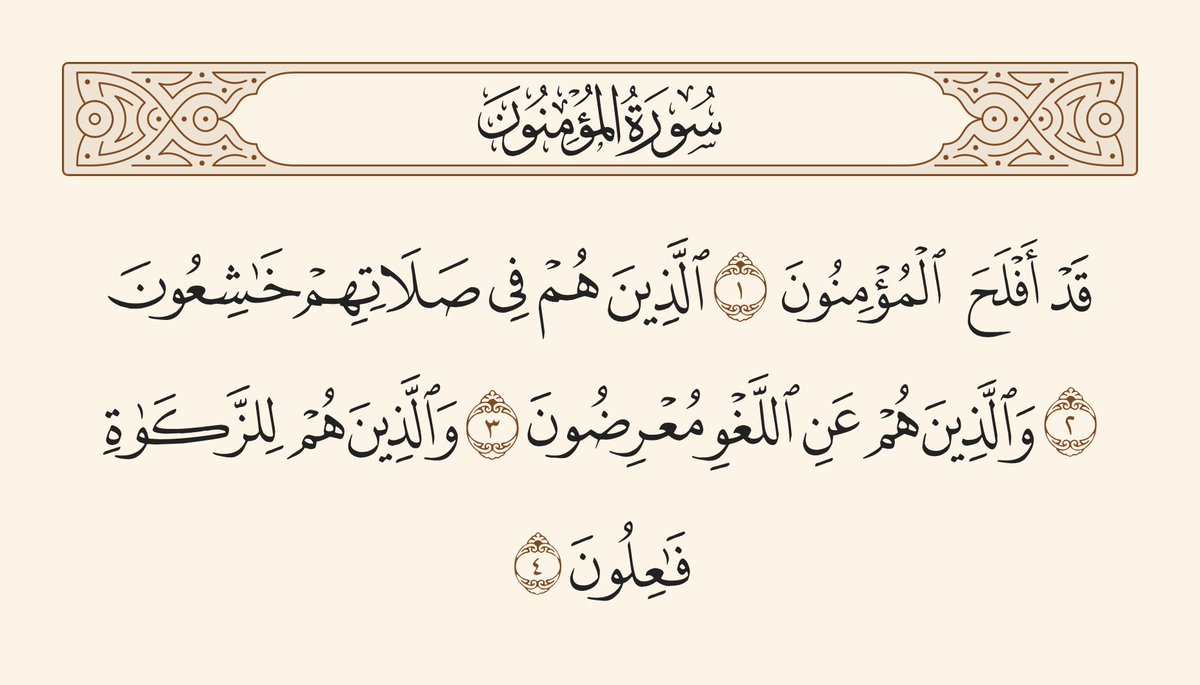 سُورَةُ المُؤْمِنُونَ
قَدْ أَفْلَحَ ٱلْمُؤْمِنُونَ ١ ٱلَّذِينَ هُمْ فِى صَلَاتِهِمْ خَـٰشِعُونَ
٢ وَٱلَّذِينَ هُمْ عَنِ ٱللَّغْوِ مُعْرِضُونَ ٣ وَٱلَّذِينَ هُمْ لِلزَّكَوٰةِ
فَـٰعِلُونَ ٤